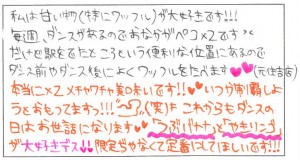 私は甘い物(特にワッフル)が大好きです!!!
毎週、ダンスがあるのでおなかがペコ×2です
だけど駅をでたところという便利な位置にあるので
ダンス前やダンス後によくワッフルをたべます♥♥(元住吉店)
本当に×2メチャウチャ美味いです!!♥♥いつか制覇しよ
うとおもってますっ!!!(笑)これからもダンスの
日はお世話になります♥♥つぶつぶバナナとやきリンゴ
が大好きデス!!限定ぢゃなくて定番にしてほしいです!!!